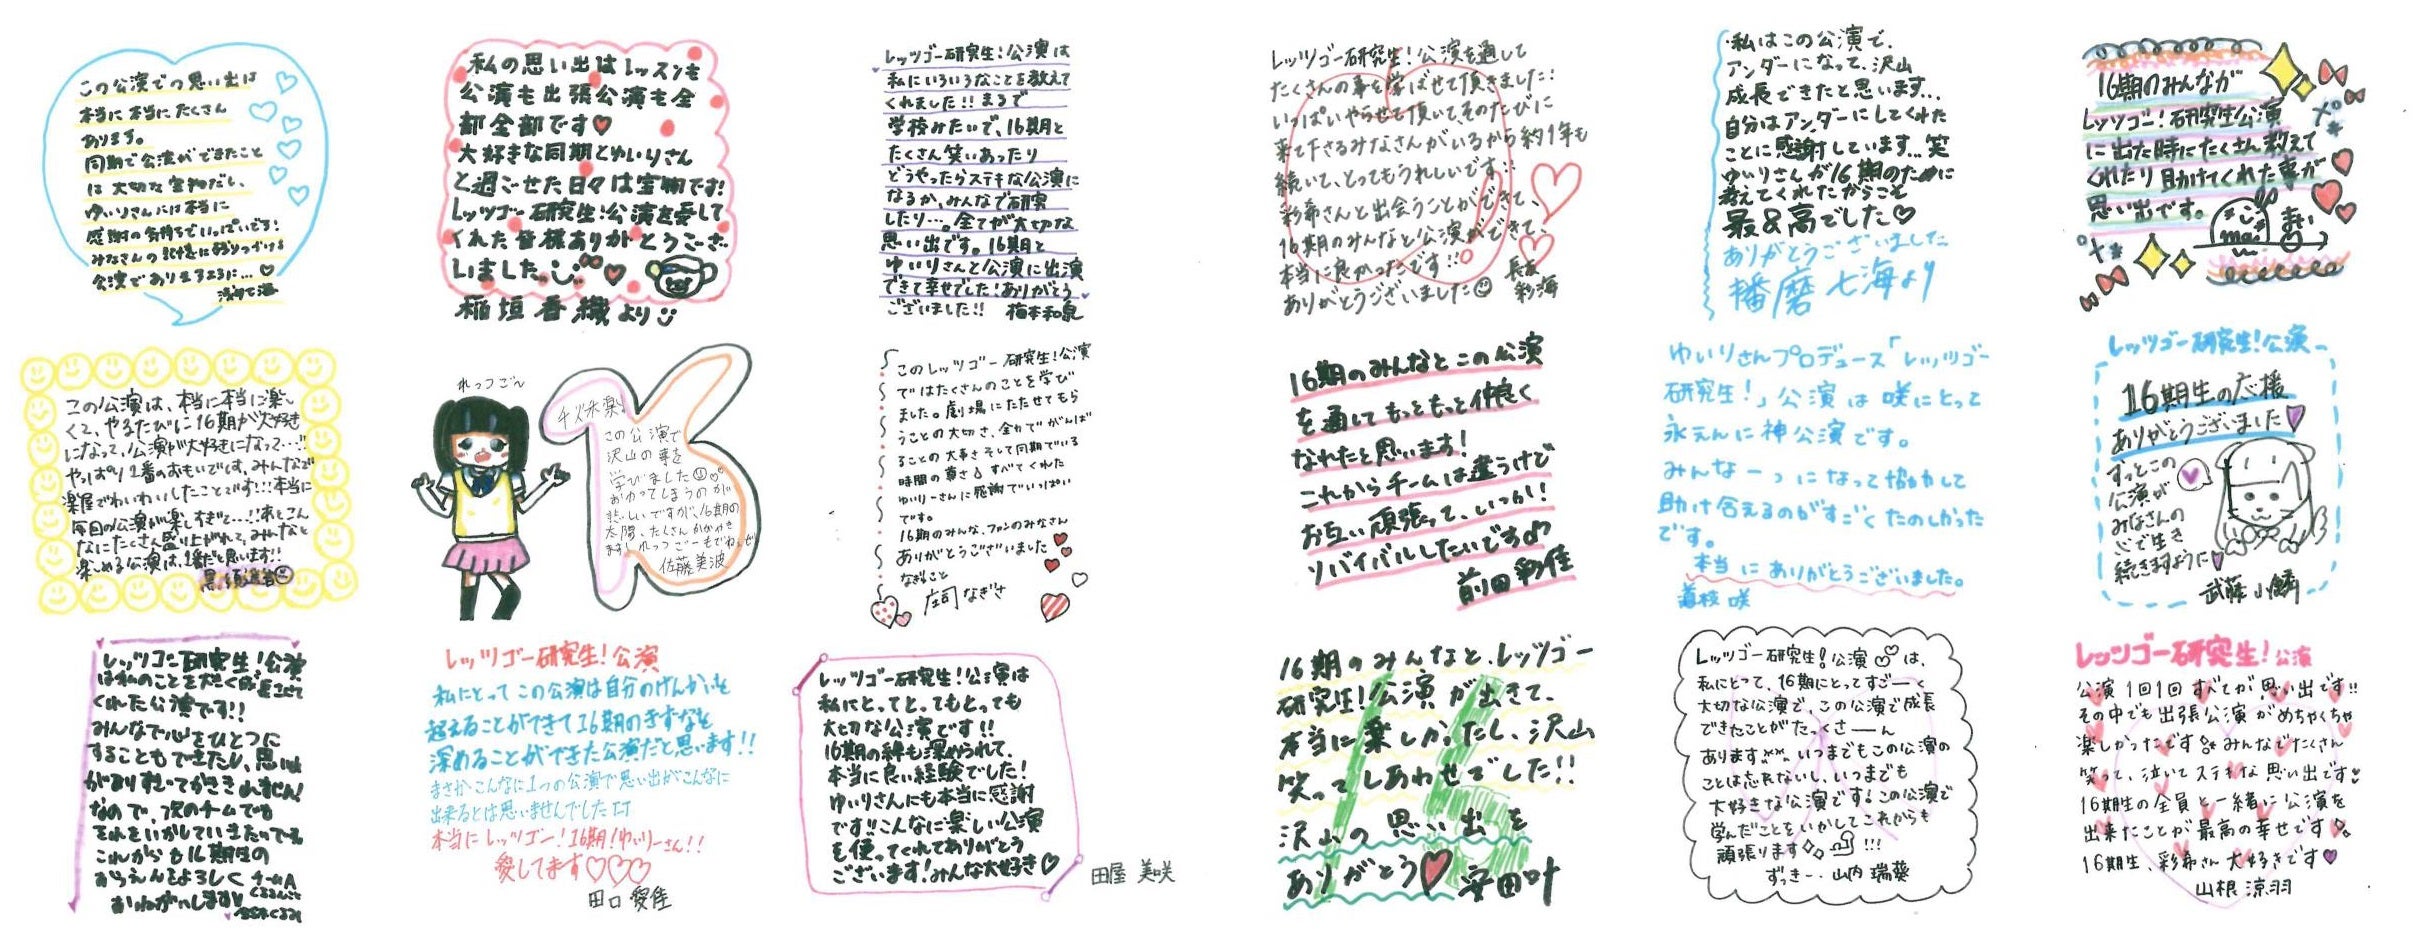 この公演での思い出は
本当に本当にたくさん
あります。
同期で公演ができたこと
は大切な宝物だし、
ゆいりさんには本当に
感謝の気持ちでいっぱいです!
みなさんの記憶に残りつづける
公演でありますように…♡
浅井七海
私の思い出はレッスンも
公演も出張公演も全
部全部です♥
大好きな同期とゆいりさん
と過ごせた日々は宝物です!
レッツゴー研究生!公演を愛して
くれた皆様ありがとうござ
いました
稲垣香織より
レッツゴー研究生!公演は
私にいろいろなことを教えて
くれました!!まるで
学校みたいで、16期と
たくさん笑いあったり
どうやったらステキな公演に
なるか、みんなで研究
したり…。全てが大切な
思い出です。16期と
ゆいりさんと公演に出演
できて幸せでした!ありがとう
ございました!! 梅本和泉
レッツゴー研究生!公演を通して
たくさんの事を学ばせて頂きました!
いっぱいやらせて頂いて、そのたびに
来て下さるみなさんがいるから約1年も
続いて、とってもうれしいです!!
彩希さんと出会うことができて、
16期のみんなと公演ができて、
本当に良かったです!!
ありがとうございました
長友
彩海
私はこの公演で、
アンダーになって、沢山
成長できたと思います…
自分はアンダーにしてくれた
ことに感謝しています…笑
ゆいりさんが16期のために
考えてくれたからこそ
最&高でした♡
ありがとうございました
播磨七海より
16期のみんなが
レッツゴー!研究生公演
に出た時にたくさん教えて
くれたり助けてくれた事が
思い出です。
まい
この公演は、本当に本当に楽し
くて、やるたびに16期が大好き
になって、公演が大好きになって…!!
やっぱり1番のおもいでは、みんなで
楽屋でわいわいしたことです!!!本当に
毎回の公演が楽しすぎて…!!あとこん
なにたくさん盛り上がれて、みんなと
楽しめる公演は、1番だと思います!!
れっつごー
千秋楽
この公演で
沢山の事を
学びました
おわってしまうのが
悲しいですが、16期の
太陽、たくさんかがやき
ます!れっつごーもでねぇぜ
佐藤美波
このレッツゴー研究生!公演
ではたくさんのことを学び
ました。劇場にたたせてもら
うことの大切さ、全力でがんば
ることの大事さそして同期でいる
時間の尊さ すべてくれた
ゆいりーさんに感謝でいっぱい
です。
16期のみんな、ファンのみなさん
ありがとうございました
なぎさこと
庄司なぎさ
16期のみんなとこの公演
を通してもっともっと仲良く
なれたと思います!
これからチームは違うけど
お互い頑張って、いつか!
ソバイバルしたいです♪
前田彩佳
ゆいりさんプロデュース「レッツゴー
研究生!」公演は咲にとって
永えんに神公演です。
みんな一つになって協力して
助け合えるのがすごくたのしかった
です。
本当にありがとうございました。
道枝咲
レッツゴー研究生!公演
16期生の応援
ありがとうございました
ずっとこの
公演が
みなさんの
心で生き
続きますように
武藤小麟
レッツゴー研究生!公演
は私のことを大きく成長させて
くれた公演です!!
みんなで心をひとつに
することもできたし、思い出
がありすぎてかききれません!
なので、次のチームでも
それをいかしていきたいです
これからも16期生の
おうえんをよろしく
おねがいします
チームA
レッツゴー研究生!公演
私にとってこの公演は自分のげんかいを
超えることができて16期のきずなを
深めることができた公演だと思います!!
まさかこんなに1つの公演で思い出がこんなに
出来るとは思いませんでした
本当にレッツゴー!16期!ゆいりーさん!!
愛してます♡♡♡
田口愛佳
レッツゴー研究生!公演は
私にとってとってもとっても
大切な公演です!!
16期の絆も深められて、
本当に良い経験でした!
ゆいりさんにも本当に感謝
です!!こんなに楽しい公演
を使ってくれてありがとう
ございます!みんな大好き♡
田屋美咲
16期のみんなと、レッツゴー
研究生!公演が出きて、
本当に楽しかったし、沢山
笑ってしあわせでした!!
沢山の思い出を
ありがとう♥ 安田叶
レッツゴー研究生!公演は、
私にとって、16期にとってすごーく
大切な公演で、この公演で成長
できたことがたっくさーん
あります いつまでもこの公演の
ことは忘れないし、いつまでも
大好きな公演です!この公演で
学んだことをいかしてこれからも
頑張ります !!!
ずっきー 山内瑞葵
レッツゴー研究生!公演
公演1回1回すべてが思い出です!!
その中でも出張公演がめちゃくちゃ
楽しかったです みんなでたくさん
笑って、泣いてステキな思い出です
16期生の全員と一緒に公演を
出来たことが最高の幸せです
16期生、彩希さん大好きです♥
山根涼羽